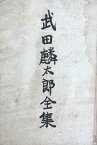 武田麟太郎全集